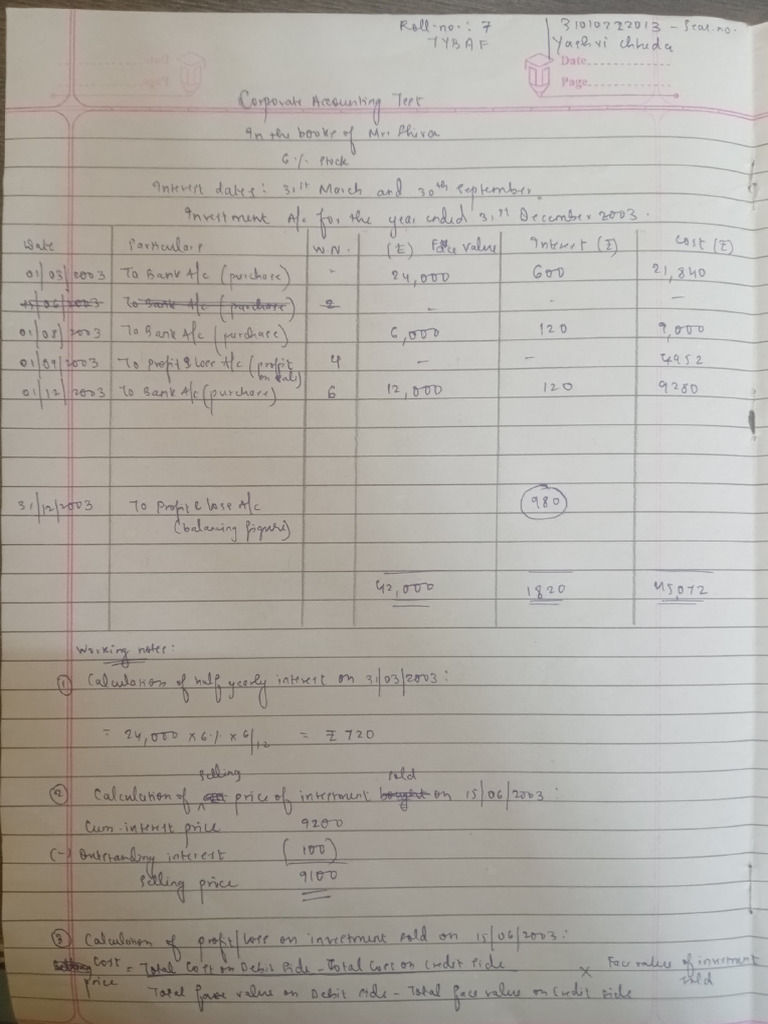 Roll-no.: 7
TYBAF
31010222013 - Seat.no.
Yashvi Chheda
Date
Page
Corporate Accounting Test
In the books of Mr. Shiva
6% stock
Interest dates: 31st March and 30th September.
Investment A/c for the year ended 31st December 2003.
Date Particulars W.N. (₹) Face value Interest (₹) Cost (₹)
01/03/2003 To Bank A/c (purchase) - 24,000 600 21,840
15/06/2003 To Bank A/c (purchase) 2 - - -
01/08/2003 To Bank A/c (purchase) 6,000 120 9,000
01/09/2003 To Profit & Loss A/c (profit on sale) 4 - - 4952
01/12/2003 To Bank A/c (purchase) 6 12,000 120 9280
31/12/2003 To Profit & Loss A/c 980
(balancing figure)
42,000 1820 45,072
Working notes:
① Calculation of half yearly interest on 31/03/2003:
= 24,000 x 6% x 6/12 = ₹ 720
② Calculation of selling price of investment bought sold on 15/06/2003:
Cum-interest price 9200
(-) Outstanding interest (100)
Selling price 9100
③ Calculation of profit/loss on investment sold on 15/06/2003:
Cost price = Total Cost on Debit side - Total Cost on Credit side x Face value of investment sold
Total face value on Debit side - Total face value on Credit side